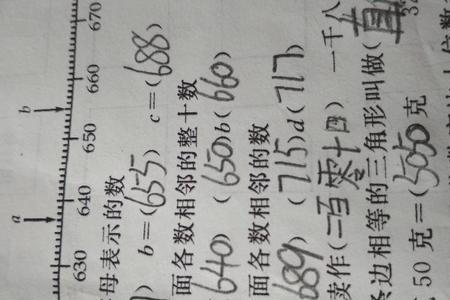 a b
630 640 650 660 670
母表示的数
) b=(655) c=(688)
面各数相邻的整十数
640) (650)b(660)
面各数相邻的数
689) (715)d(717)
读作(二百零十四) 一千八
边相等的三角形叫做(直
50克=(5050克